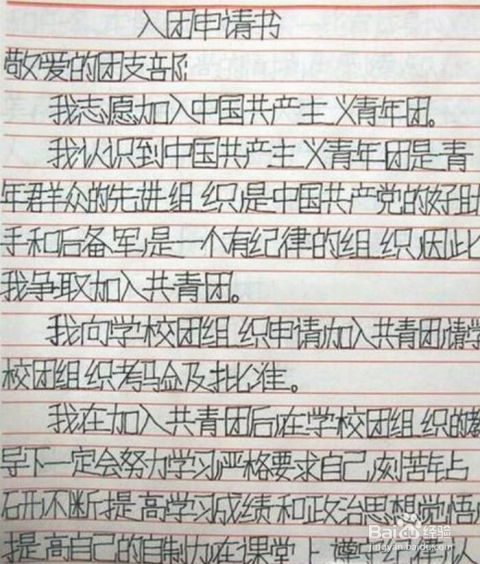 入团申请书
敬爱的团支部
我志愿加入中国共产主义青年团。
我认识到中国共产主义青年团是青
年群众的先进组织,是中国共产党的好助
手和后备军,是一个有纪律的组织,因此
我争取加入共青团。
我向学校团组织申请加入共青团,请学
校团组织考验及批准。
我在加入共青团后,在学校团组织的教
导下一定会努力学习,严格要求自己,刻苦钻
研,不断提高学习成绩和政治思想觉悟,
提高自己的自制力,在课堂上遵守纪律,认
Baidu经验
jingyan.baidu.com